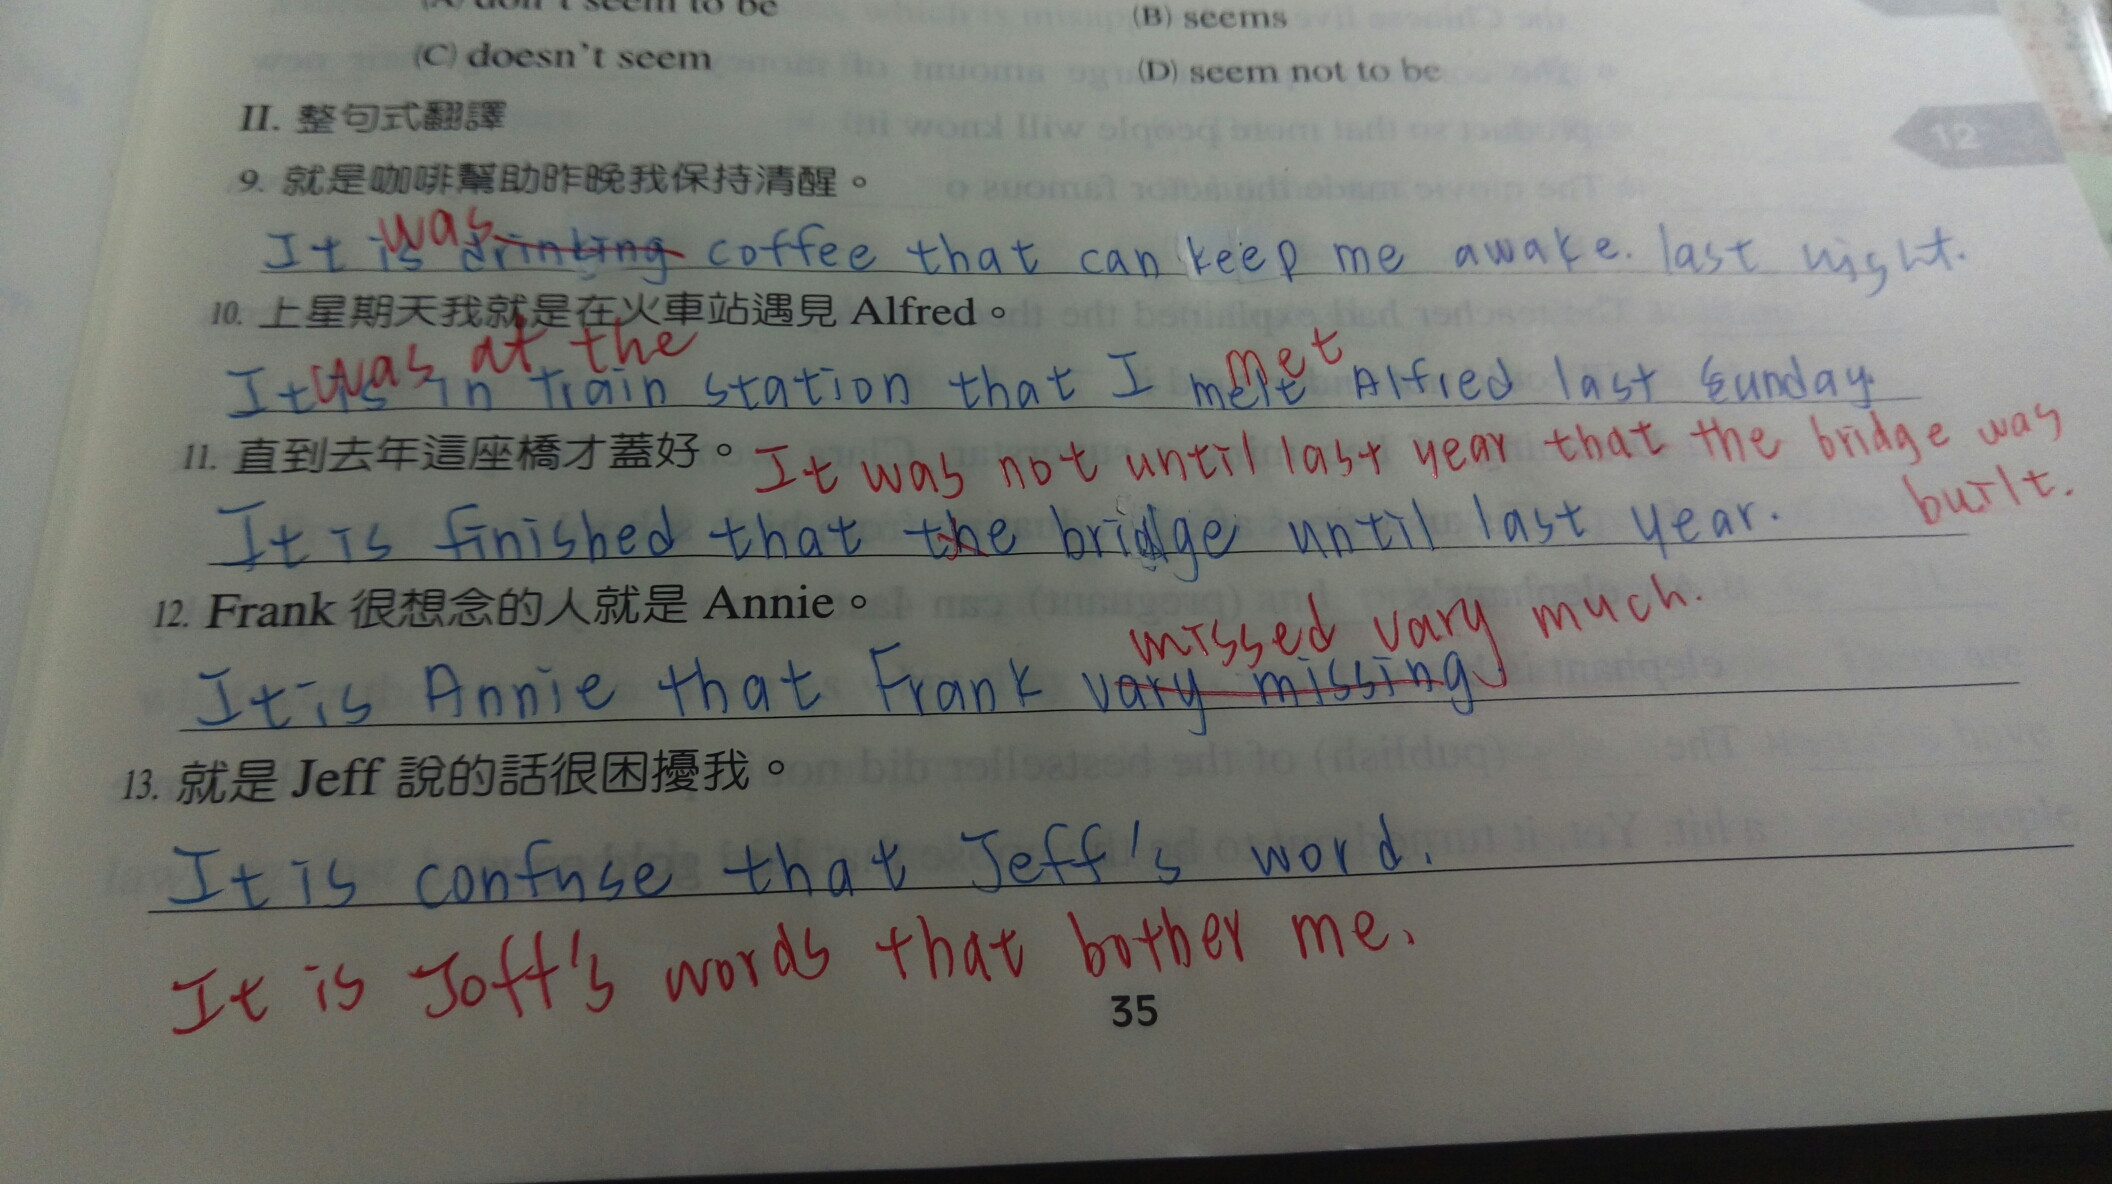 (A) don't seem to be
(B) seems
(C) doesn't seem
(D) seem not to be
II. 整句式翻譯
12
9. 就是咖啡幫助昨晚我保持清醒。
was
It is drinking coffee that can keep me awake. last night.
10. 上星期天我就是在火車站遇見 Alfred。
was at the met
It is in train station that I melt Alfred last Sunday.
11. 直到去年這座橋才蓋好。 It was not until last year that the bridge was
built.
It is finished that the bridge until last year.
12. Frank 很想念的人就是 Annie。
missed vary much.
It is Annie that Frank vary missing.
13. 就是 Jeff 說的話很困擾我。
It is confuse that Jeff's word.
It is Joff's words that bother me.
35